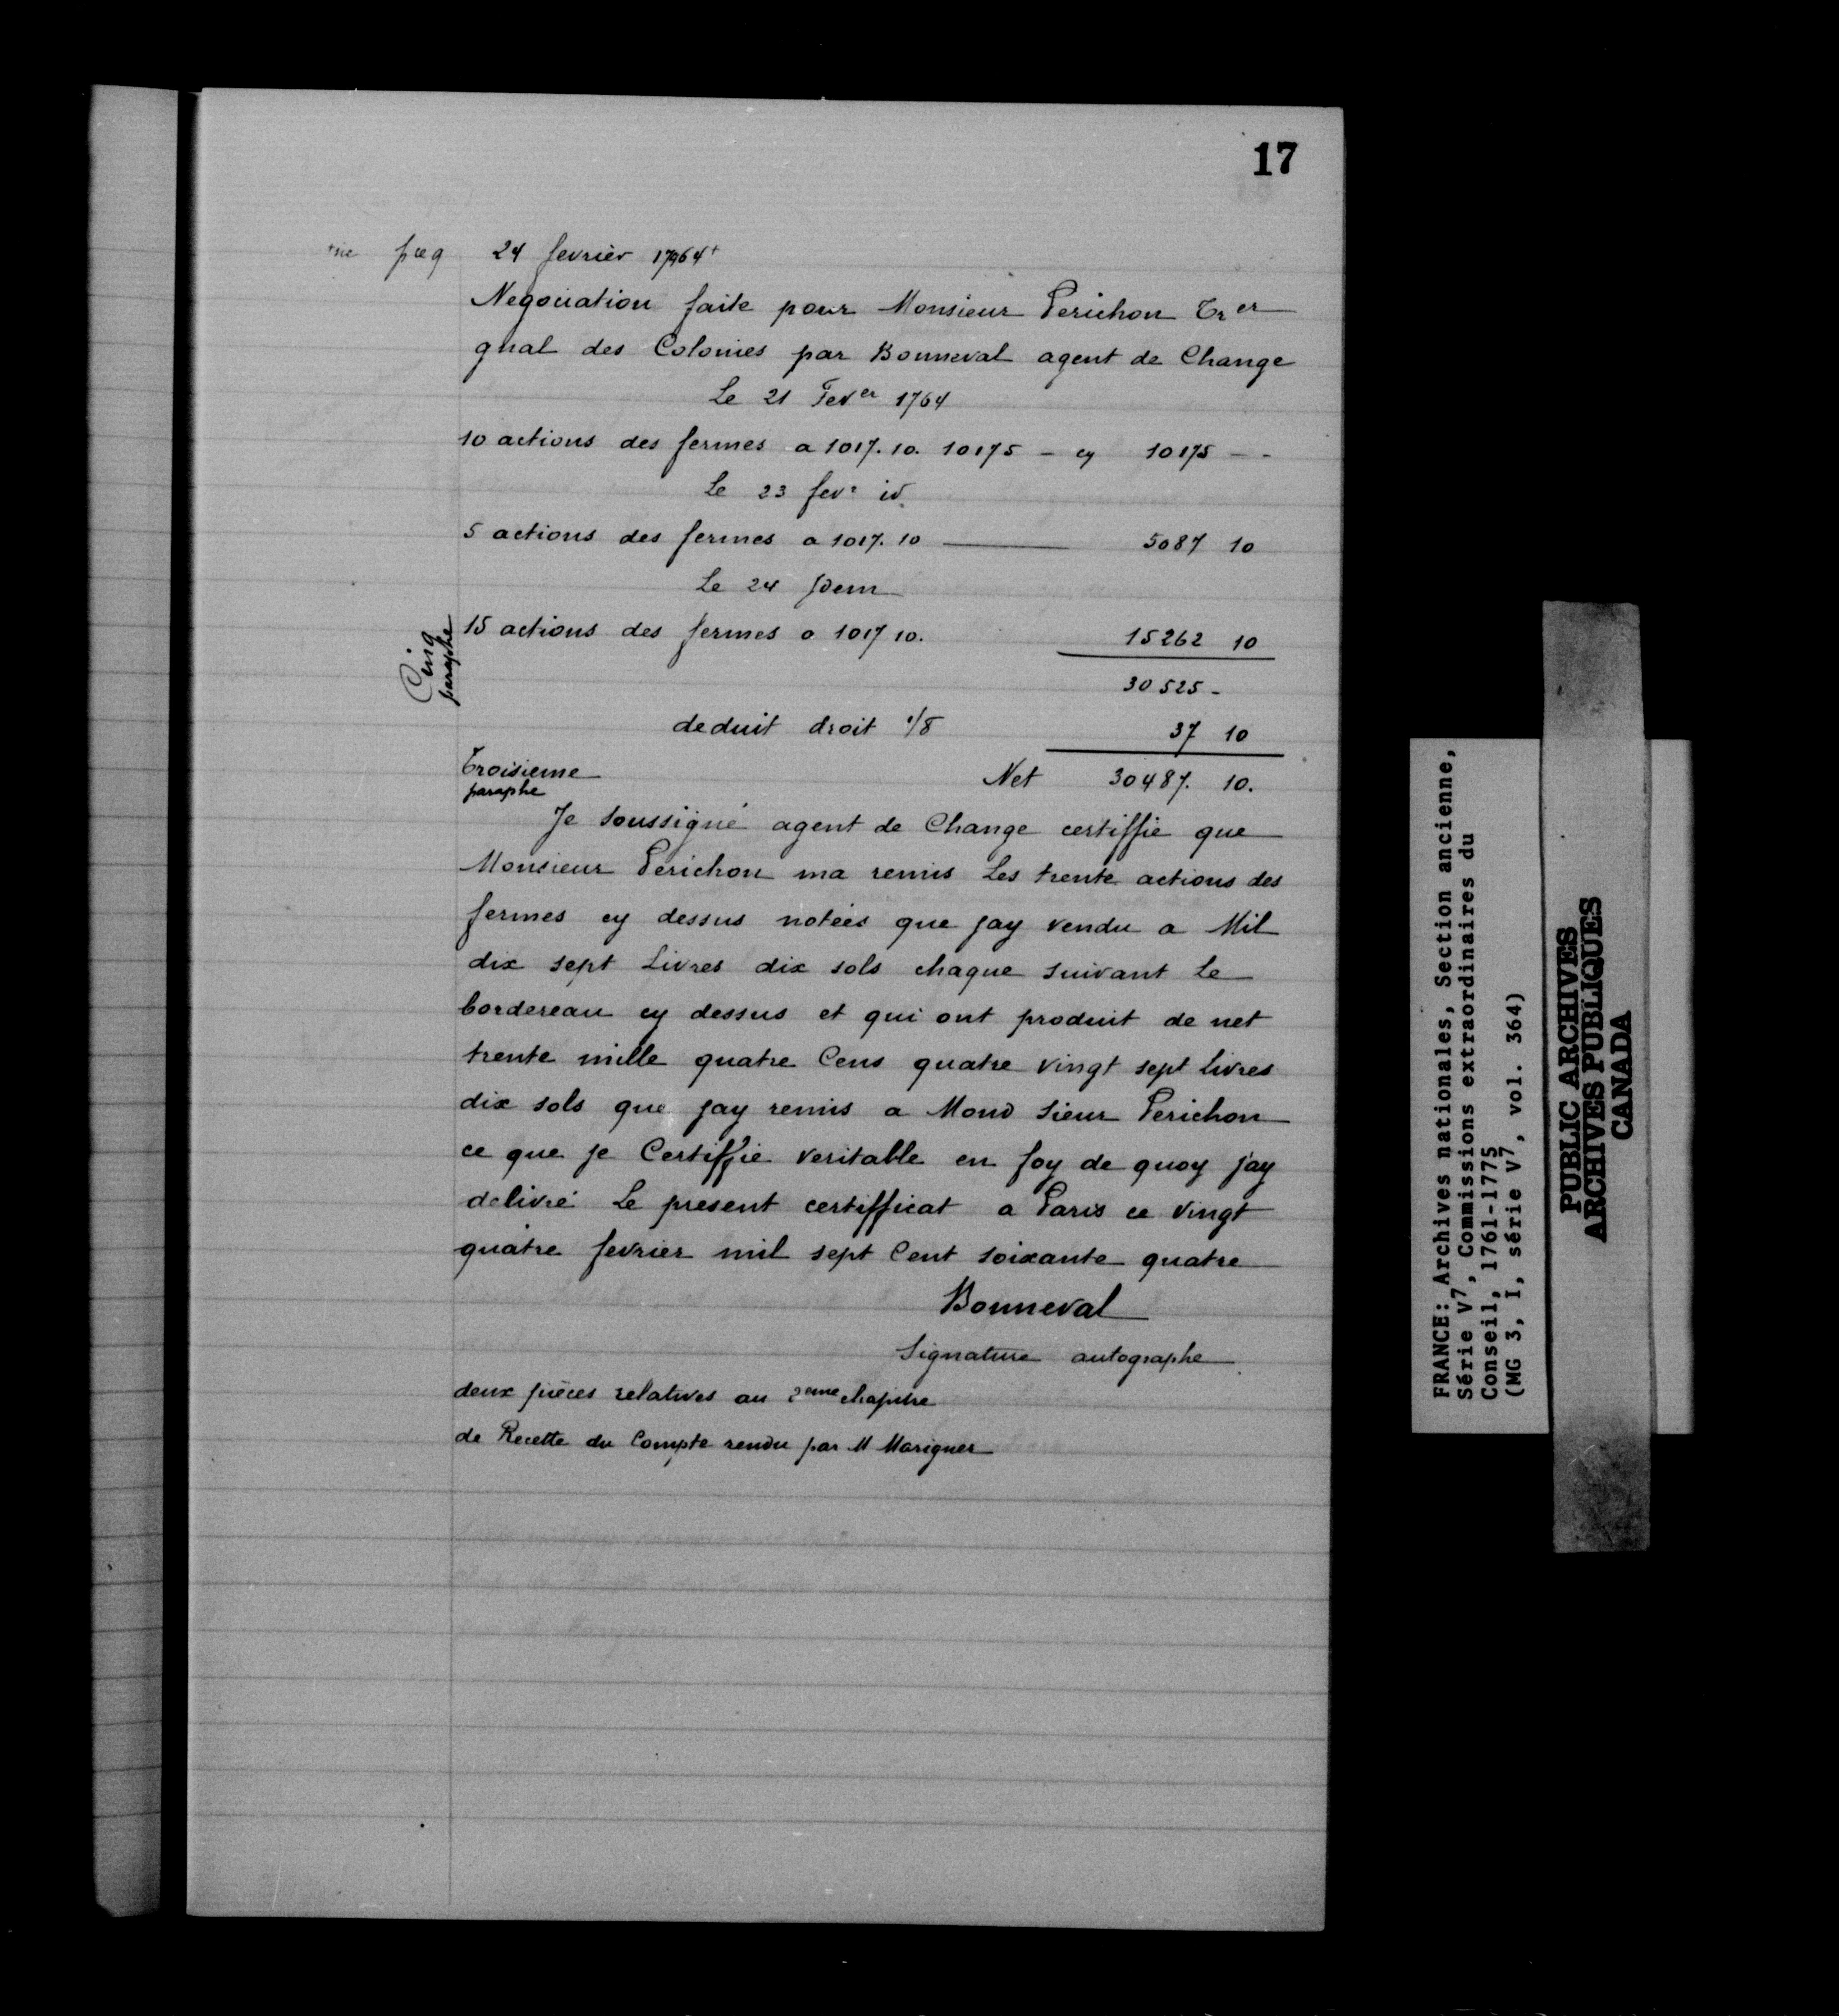 17
24 fevrier 1764
Negociation faite pour Monsieur Perichon Trer
gnal des Colonies par Bonneval agent de Change
Le 21 Fever 1764
10 actions des fermes a 1017.10. 10175 - cy 10175 - -
Le 23 fevr id.
5 actions des fermes a 1017.10 5087 10
Le 24 Idem
15 actions des fermes a 1017 10. 15262 10
Cinq
paraphe
30525 -
deduit droit 1/8 37 10
Troisieme
paraphe
Net 30487. 10.
Je soussigné agent de Change certiffie que
Monsieur Perichon ma remis Les trente actions des
fermes cy dessus notées que jay vendu a Mil
dix sept Livres dix sols chaque suivant Le
bordereau cy dessus et qui ont produit de net
trente mille quatre Cens quatre vingt sept livres
dix sols que jay remis a Mond sieur Perichon
ce que je Certiffie veritable en foy de quoy j'ay
delivré Le present certifficat a Paris ce vingt
quatre fevrier mil sept Cent soixante quatre
Bonneval
Signature autographe
deux pièces relatives au 2eme chapitre
de Recette du Compte rendu par M Marigner
FRANCE: Archives nationales, Section ancienne,
Série V7, Commissions extraordinaires du
Conseil, 1761-1775
(MG 3, I, série V7, vol. 364)
PUBLIC ARCHIVES
ARCHIVES PUBLIQUES
CANADA